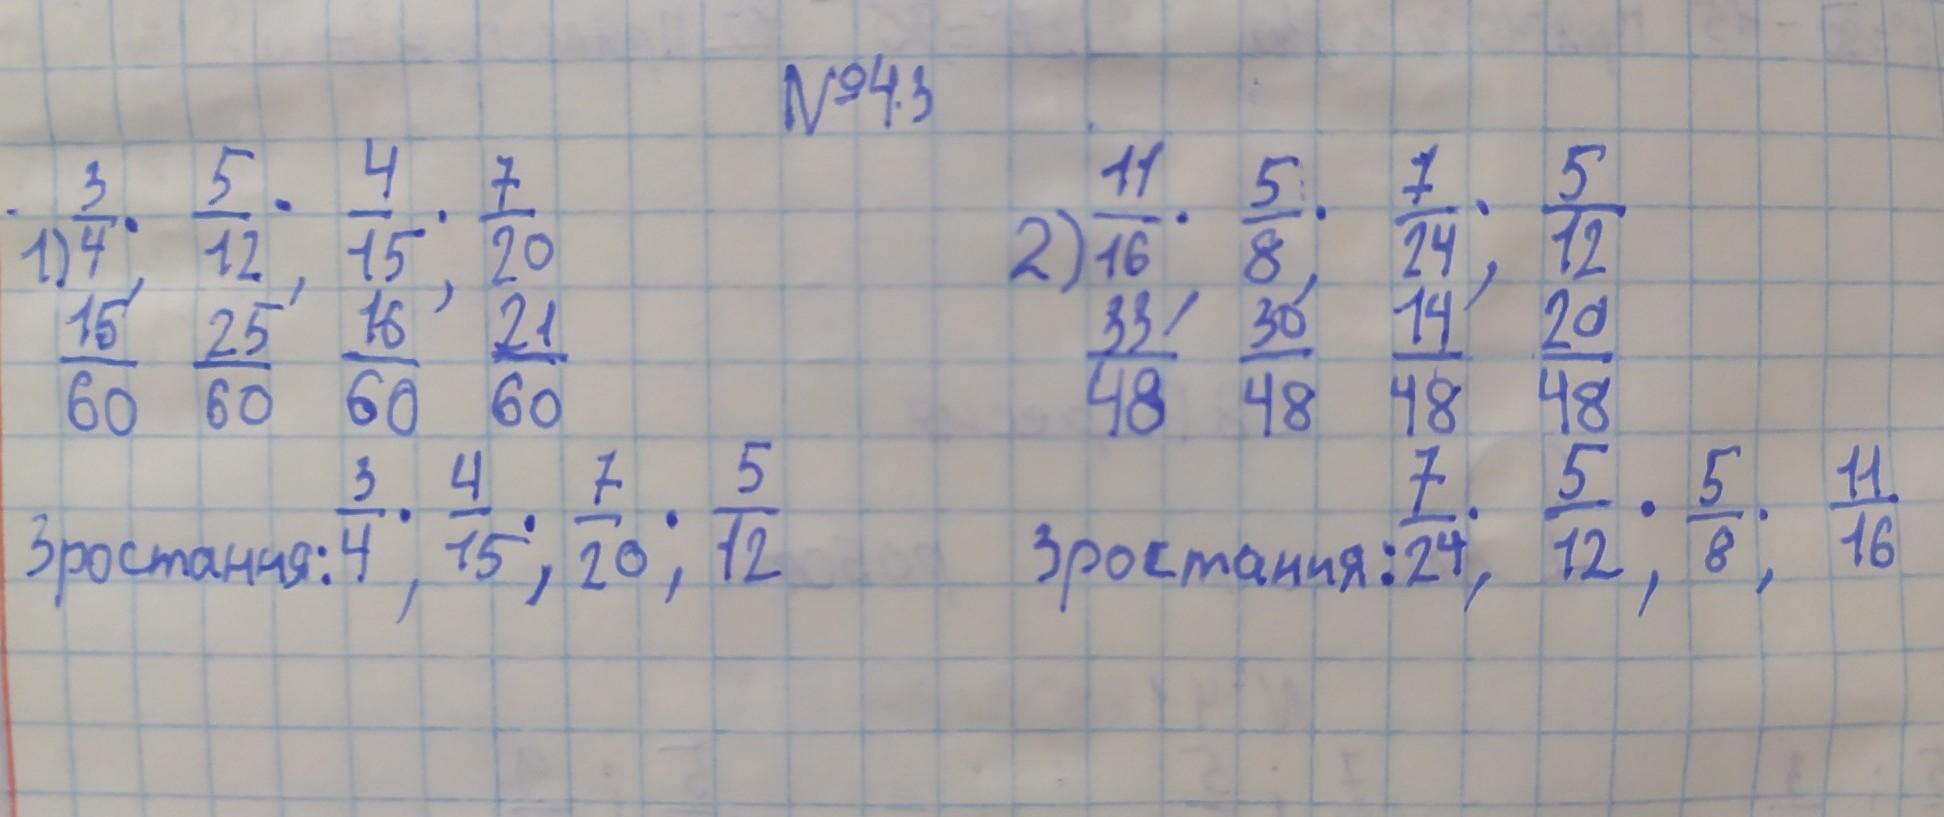 №43
1) 3/4; 5/12; 4/15; 7/20
15/60 25/60 16/60 21/60
Зростання: 3/4; 4/15; 7/20; 5/12
2) 11/16; 5/8; 7/24; 5/12
33/48 30/48 14/48 20/48
Зростання: 7/24; 5/12; 5/8; 11/16